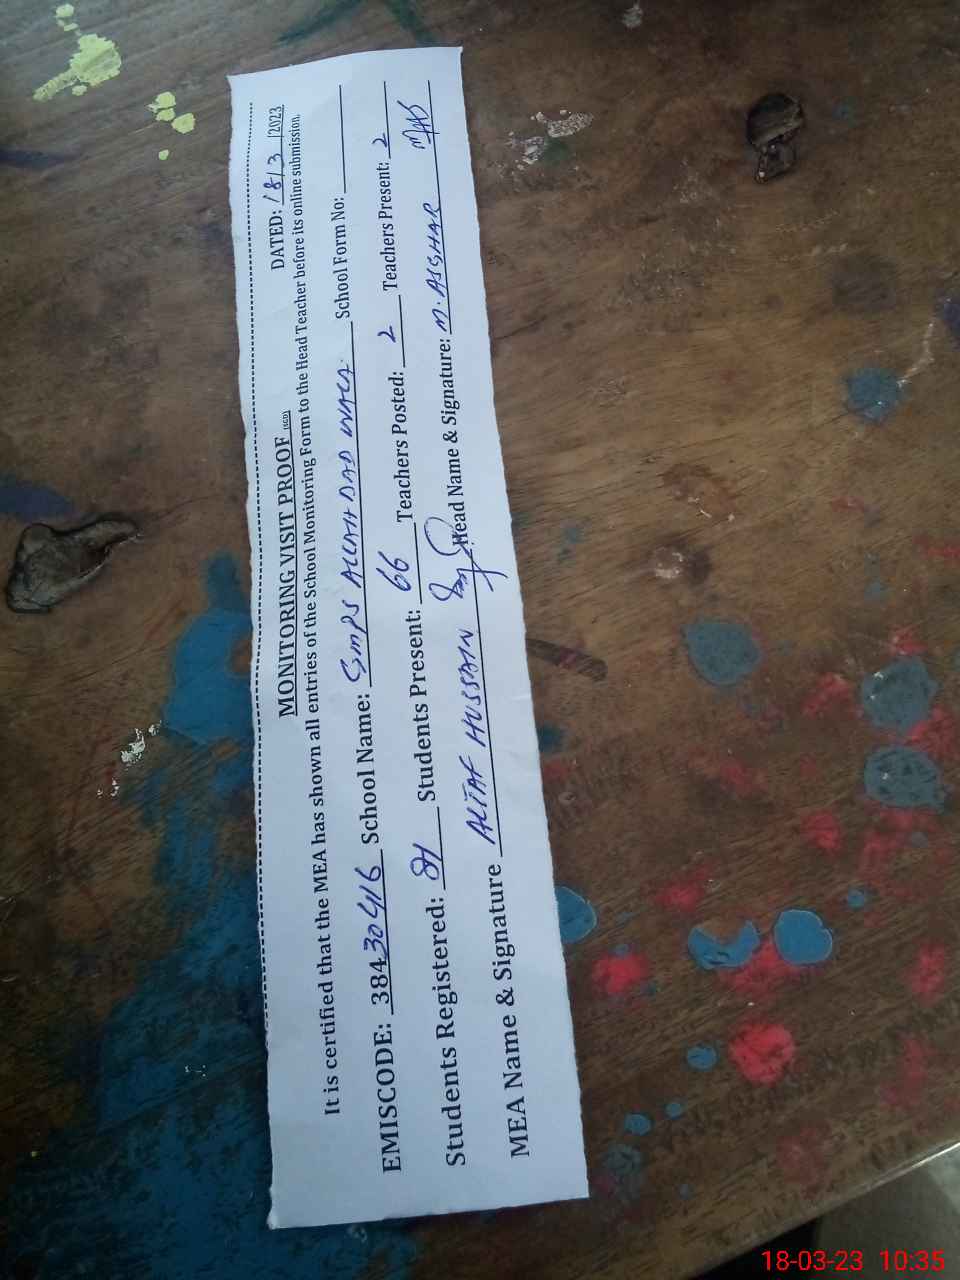 MONITORING VISIT PROOF (SGD) DATED: 18/3/2023
It is certified that the MEA has shown all entries of the School Monitoring Form to the Head Teacher before its online submission.
EMISCODE: 38430416 School Name: GMPS ALLAH DAD WALA School Form No:
Students Registered: 81 Students Present: 66 Teachers Posted: 2 Teachers Present: 2
MEA Name & Signature ALTAF HUSSAIN Head Name & Signature: M. ASGHAR
18-03-23 10:35